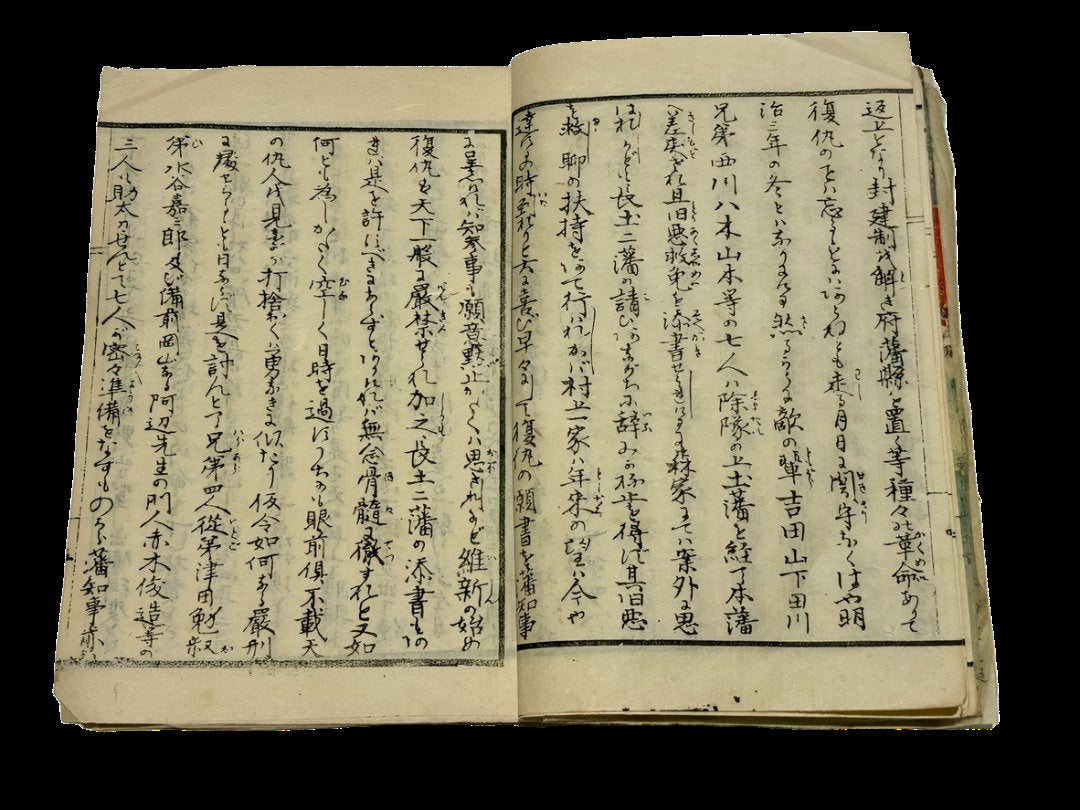 返上となり封建制を解き府藩縣と置く等種々の革命あつて
復仇のことハ忘るゝとにハあらねども来る月日に関守なくはや明
治三年の冬とハなりにけり然るに敵の輩吉田山下田川
兄弟西川八木山本等の七人ハ除隊の上土藩を経て本藩
へ差戻され旧悪救免を添書せられける森家にてハ案外に思
はれけれども長土二藩の請ひなれバ辞み得ず其旧悪
を救し聊の扶持を以て行ハれしかバ村上一家ハ年来の望ハ今や
達するの時到れりと大に喜び早々にして復仇の願書を藩知事
に呈しけれバ知事も願意黙止がたくハ思されけれど維新の始め
復仇を天下一般に厳禁せられ加之長土二藩の添書もの
まハ是を許すべきにあらずとありけれバ無念骨髄に徹すれど又如
何とも為しがたく空しく日時を過すうちにも眼前倶不載天
の仇人を見ながら打捨おくハ勇なきに似たり仮令如何なる厳刑
に處せらるゝとも目ざす是を討んとて兄弟四人従弟津田勉叔
弟水谷嘉三郎及び備前岡山なる阿辺先生の門人赤木俊造等の
三人も助太刀せんとて七人が密々準備をなすものから藩知事赤